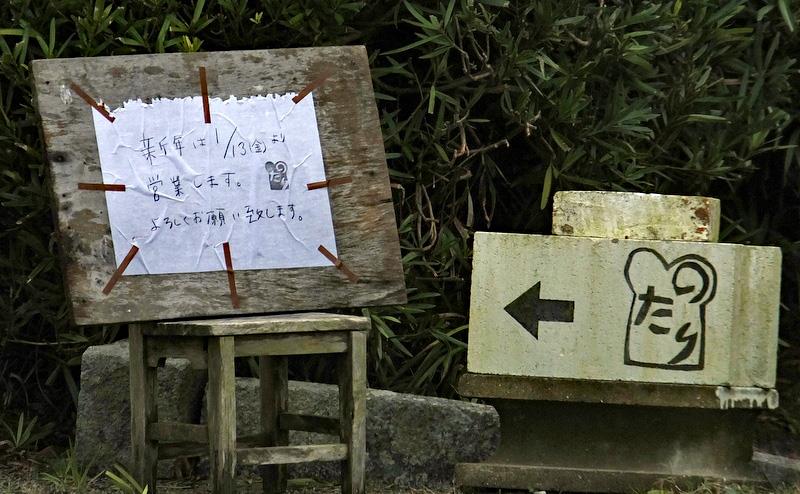 新年は1/13(金)より
営業します。
よろしくお願い致します。
のたり